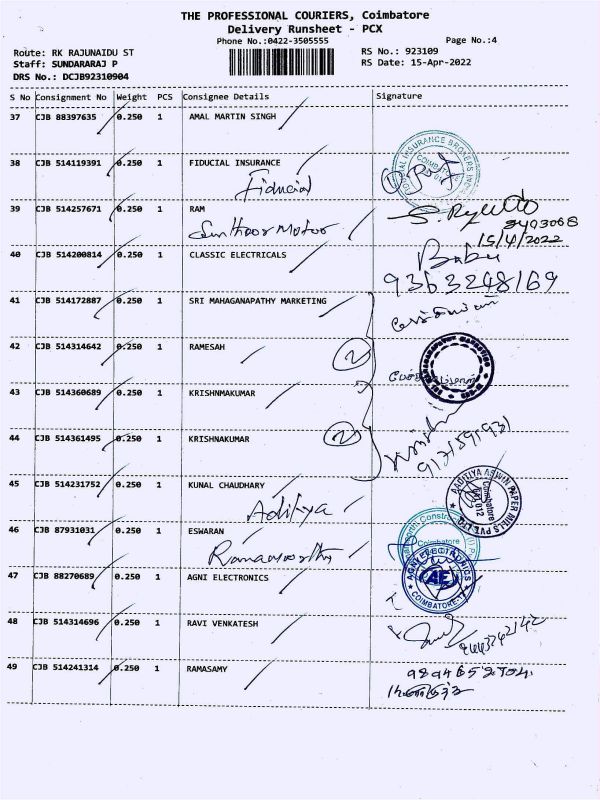 THE PROFESSIONAL COURIERS, Coimbatore
Delivery Runsheet - PCX
Phone No.:0422-3505555
Page No.:4
Route: RK RAJUNAIDU ST
RS No.: 923109
Staff: SUNDARARAJ P
RS Date: 15-Apr-2022
DRS No.: DCJB92310904
S No Consignment No Weight PCS Consignee Details Signature
37 CJB 88397635 0.250 1 AMAL MARTIN SINGH
38 CJB 514119391 0.250 1 FIDUCIAL INSURANCE
Fiducial
39 CJB 514257671 0.250 1 RAM
Motor
15/4/2022
40 CJB 514200814 0.250 1 CLASSIC ELECTRICALS
Babu
9363248169
41 CJB 514172887 0.250 1 SRI MAHAGANAPATHY MARKETING
42 CJB 514314642 0.250 1 RAMESAH
2
43 CJB 514360689 0.250 1 KRISHNMAKUMAR
44 CJB 514361495 0.250 1 KRISHNAKUMAR
2
9171591931
45 CJB 514231752 0.250 1 KUNAL CHAUDHARY
Aditya
AADITIYA ASWIN PAPER MILLS PVT LTD
Coimbatore
46 CJB 87931031 0.250 1 ESWARAN
Ramamoorthy
Coimbatore
47 CJB 88270689 0.250 1 AGNI ELECTRONICS
AGNI ELECTRONICS
AE
COIMBATORE
48 CJB 514314696 0.250 1 RAVI VENKATESH
49 CJB 514241314 0.250 1 RAMASAMY